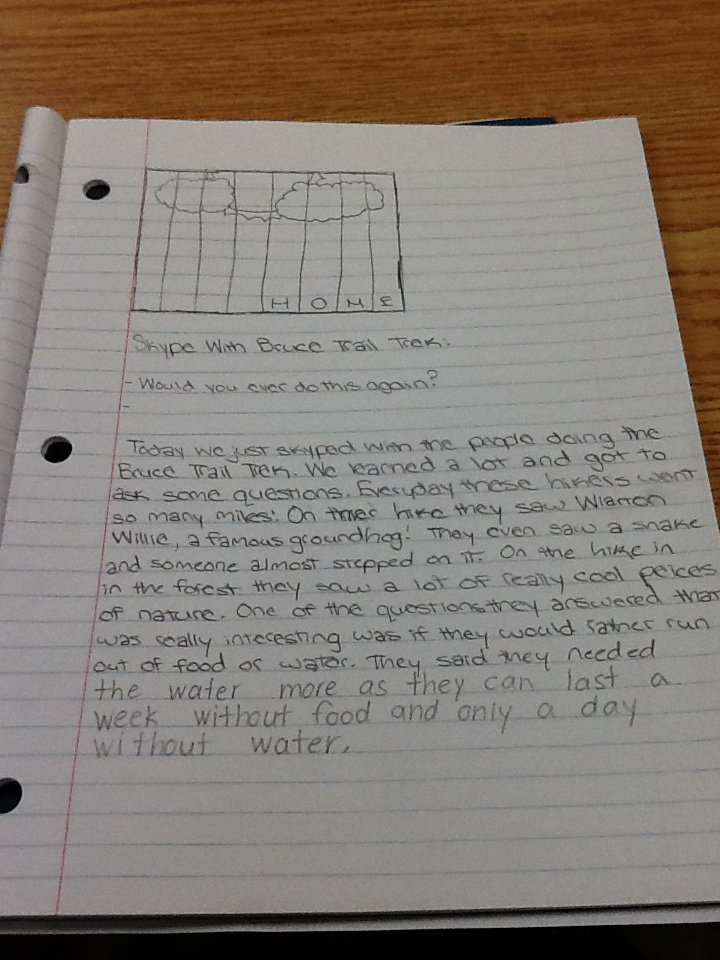 H O M E
Skype With Bruce Trail Trek:
- Would you ever do this again?
-
Today we just skyped with the people doing the
Bruce Trail Trek. We learned a lot and got to
ask some questions. Everyday these hikers went
so many miles! On their hike they saw Wiarton
Willie, a famous groundhog! They even saw a snake
and someone almost stepped on it. On the hike in
in the forest they saw a lot of really cool peices
of nature. One of the questions they answered that
was really interesting was if they would rather run
out of food or water. They said they needed
the water more as they can last a
week without food and only a day
without water.